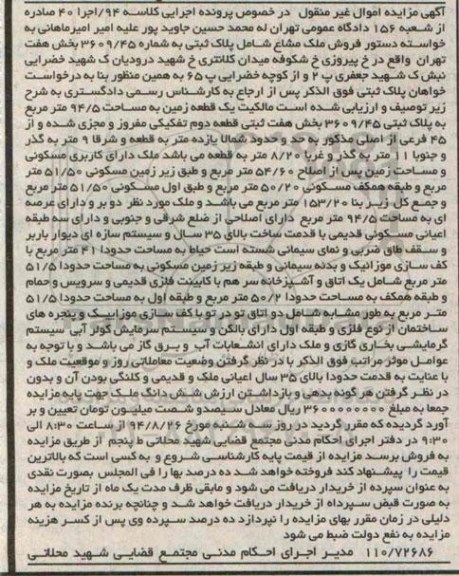 آگهی مزایده اموال غیر منقول در خصوص پرونده اجرایی کلاسه ۹۴/اجرا ۴۰ صادره
از شعبه ۱۵۶ دادگاه عمومی تهران له محمد حسین جاوید پور علیه امیر امیرماهانی به
خواسته دستور فروش ملک مشاع شامل پلاک ثبتی به شماره ۳۶۰۹/۴۵ بخش هفت
تهران واقع در خ پیروزی خ شکوفه میدان کلانتری خ شهید درودیان ک شهید خضرایی
نبش ک شهید جعفری پ ۲ و از کوچه خضرایی پ ۶۵ به همین منظور بنا به درخواست
خواهان پلاک ثبتی فوق الذکر پس از ارجاع به کارشناس رسمی دادگستری به شرح
زیر توصیف و ارزیابی شده است مالکیت یک قطعه زمین به مساحت ۹۴/۵ متر مربع
به پلاک ثبتی ۳۶۰۹/۴۵ بخش هفت ثبتی قطعه دوم تفکیکی مفروز و مجزی شده و از
۴۵ فرعی از اصلی مذکور به حد و حدود شمالا یازده متر به قطعه و شرقا ۹ متر به گذر
و جنوبا ۱۱ متر به گذر و غربا ۸/۲۰ متر به قطعه می باشد ملک دارای کاربری مسکونی
و مساحت زمین پس از اصلاح ۵۴/۶۰ متر مربع و طبق زیر زمین مسکونی ۵۱/۵۰ متر
مربع و طبقه همکف مسکونی ۵۰/۲۰ متر مربع و طبق اول مسکونی ۵۱/۵۰ متر مربع
و جمع کل زیر بنا ۱۵۳/۲۰ متر مربع می باشد و ملک مورد نظر دو بر و دارای عرصه
ای به مساحت ۹۴/۵ متر مربع دارای اصلاحی از ضلع شرقی و جنوبی و دارای سه طبقه
اعیانی مسکونی قدیمی با قدمت ساخت بالای ۳۵ سال و سیستم سازه ای دیوار باربر
و سقف طاق ضربی و نمای سیمانی شسته است حیاط به مساحت حدودا ۴۱ متر مربع با
کف سازی موزائیک و بدنه سیمانی و طبقه زیر زمین مسکونی به مساحت حدودا ۵۱/۵
متر مربع شامل یک اتاق و آشپزخانه سر هم با کابینت فلزی قدیمی و سرویس و حمام
و طبقه همکف به مساحت حدودا ۵۰/۲ متر مربع و طبقه اول به مساحت حدودا ۵۱/۵
متر مربع به طور مشابه شامل دو اتاق تو در تو با کف سازی موزاییک و پنجره های
ساختمان از نوع فلزی و طبقه اول دارای بالکن و سیستم سرمایش کولر آبی سیستم
گرمایشی بخاری گازی و ملک دارای انشعابات آب و برق گاز می باشد و با توجه به
عوامل موثر مراتب فوق الذکر با در نظر گرفتن وضعیت معاملاتی روز و موقعیت ملک و
با عنایت به قدمت حدودا بالای ۳۵ سال اعیانی ملک و قدیمی و کلنگی بودن آن و بدون
در نظر گرفتن هر گونه بدهی و بازداشتن ارزش شش دانگ ملک جهت پایه مزایده
جمعا به مبلغ ۳۶۰۰۰۰۰۰۰۰ ریال معادل سیصد و شصت میلیون تومان تعیین و بر
آورد گردیده که مقرر گردید در روز سه شنبه مورخ ۹۴/۸/۲۶ از ساعت ۸:۳۰ الی
۹:۳۰ در دفتر اجرای احکام مدنی مجتمع قضایی شهید محلاتی ط پنجم از طریق مزایده
به فروش برسد مزایده از قیمت پایه کارشناسی شروع و به کسی است که بالاترین
قیمت را پیشنهاد کند فروخته خواهد شد ده درصد بها را فی المجلس بصورت نقدی
به عنوان سپرده از خریدار دریافت می شود و مابقی ظرف مدت یک ماه از تاریخ مزایده
به صورت قبض سپرداه از خریدار دریافت خواهد شد و چنانچه برنده مزایده به هر
دلیلی در زمان مقرر بهای مزایده را نپردازد ده درصد سپرده وی پس از کسر هزینه
مزایده به نفع دولت ضبط می شود
۱۱۰/۷۲۶۸۶ مدیر اجرای احکام مدنی مجتمع قضایی شهید محلاتی